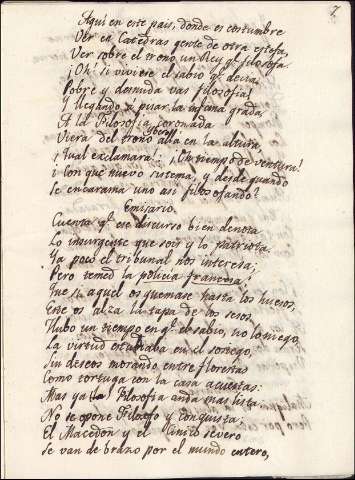 7
Aqui en este pais, donde es costumbre
Ver en Catedras gente de otra estofa,
Ver sobre el trono un Rey q.e filosofa.
¡Oh! Si viviere el sabio q.e decia,
Pobre y desnuda vas filosofia!
Y llegando a pisar la infima grada
A la Filosofia coronada
Viera del trono alla en la altura,
¡Qual exclamara: ¡Oh tiempo de ventura!
¿Con que nuevo sistema, y desde quando
Se encarama uno asi filosofando?
Emisario.
Cuenta q.e ese discurso bien denota
Lo insurgente que sois y lo patriota.
Ya poco el tribunal nos interesa;
Pero temed la policia francesa;
Que si aquel os quemase hasta los huesos,
Este os alza la tapa de los sesos.
Hubo un tiempo en q.e el sabio, no lo niego,
La virtud estudiaba en el sosiego,
Sin deseos morando entre florestas
Como tortuga con la casa acuestas:
Mas ya la Filosofia anda mas lista
No se opone Filosofo y conquista:
El Macedon y el severo
Se van de brazo por el mundo entero,